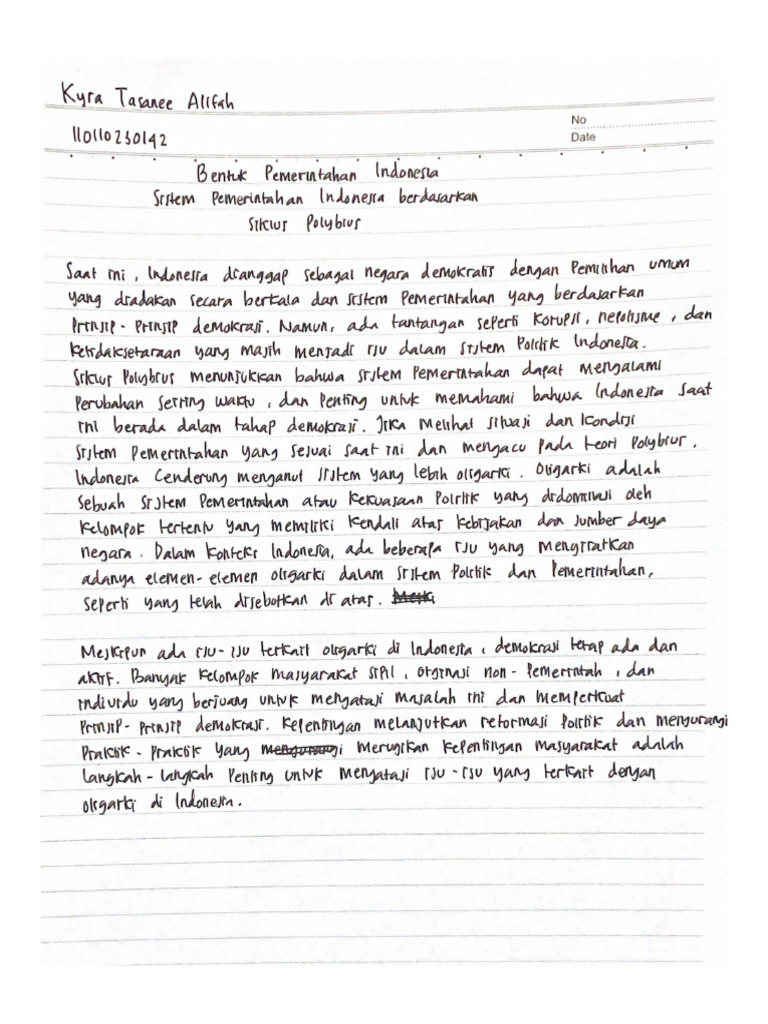 Kyra Tasanee Alifah
No
110110230142
Date
Bentuk Pemerintahan Indonesia
Sistem Pemerintahan Indonesia berdasarkan
Siklus Polybius
Saat ini, Indonesia dianggap sebagai negara demokratis dengan Pemilihan umum
yang diadakan secara berkala dan sistem Pemerintahan yang berdasarkan
Prinsip-Prinsip demokrasi. Namun, ada tantangan seperti korupsi, nepotisme, dan
ketidaksetaraan yang masih menjadi isu dalam sistem Politik Indonesia.
Siklus Polybius menunjukkan bahwa sistem Pemerintahan dapat mengalami
Perubahan seiring waktu, dan Penting untuk memahami bahwa Indonesia saat
ini berada dalam tahap demokrasi. Jika melihat situasi dan kondisi
sistem Pemerintahan yang sesuai saat ini dan mengacu pada teori Polybius,
Indonesia Cenderung menganut sistem yang lebih oligarki. Oligarki adalah
sebuah sistem Pemerintahan atau kekuasaan Politik yang didominasi oleh
kelompok tertentu yang memiliki kendali atas kebijakan dan sumber daya
negara. Dalam konteks Indonesia, ada beberapa isu yang mengisratkan
adanya elemen-elemen oligarki dalam sistem Politik dan Pemerintahan,
seperti yang telah disebutkan di atas.
Meskipun ada isu-isu terkait oligarki di Indonesia, demokrasi tetap ada dan
aktif. Banyak kelompok masyarakat sipil, orginasi non-Pemerintah, dan
individu yang berjuang untuk mengatasi masalah ini dan memperkuat
Prinsip-Prinsip demokrasi. Kepentingan melanjutkan reformasi Politik dan mengurangi
Praktik-Praktik yang merugikan kepentingan masyarakat adalah
langkah-langkah Penting untuk mengatasi isu-isu yang terkait dengan
oligarki di Indonesia.